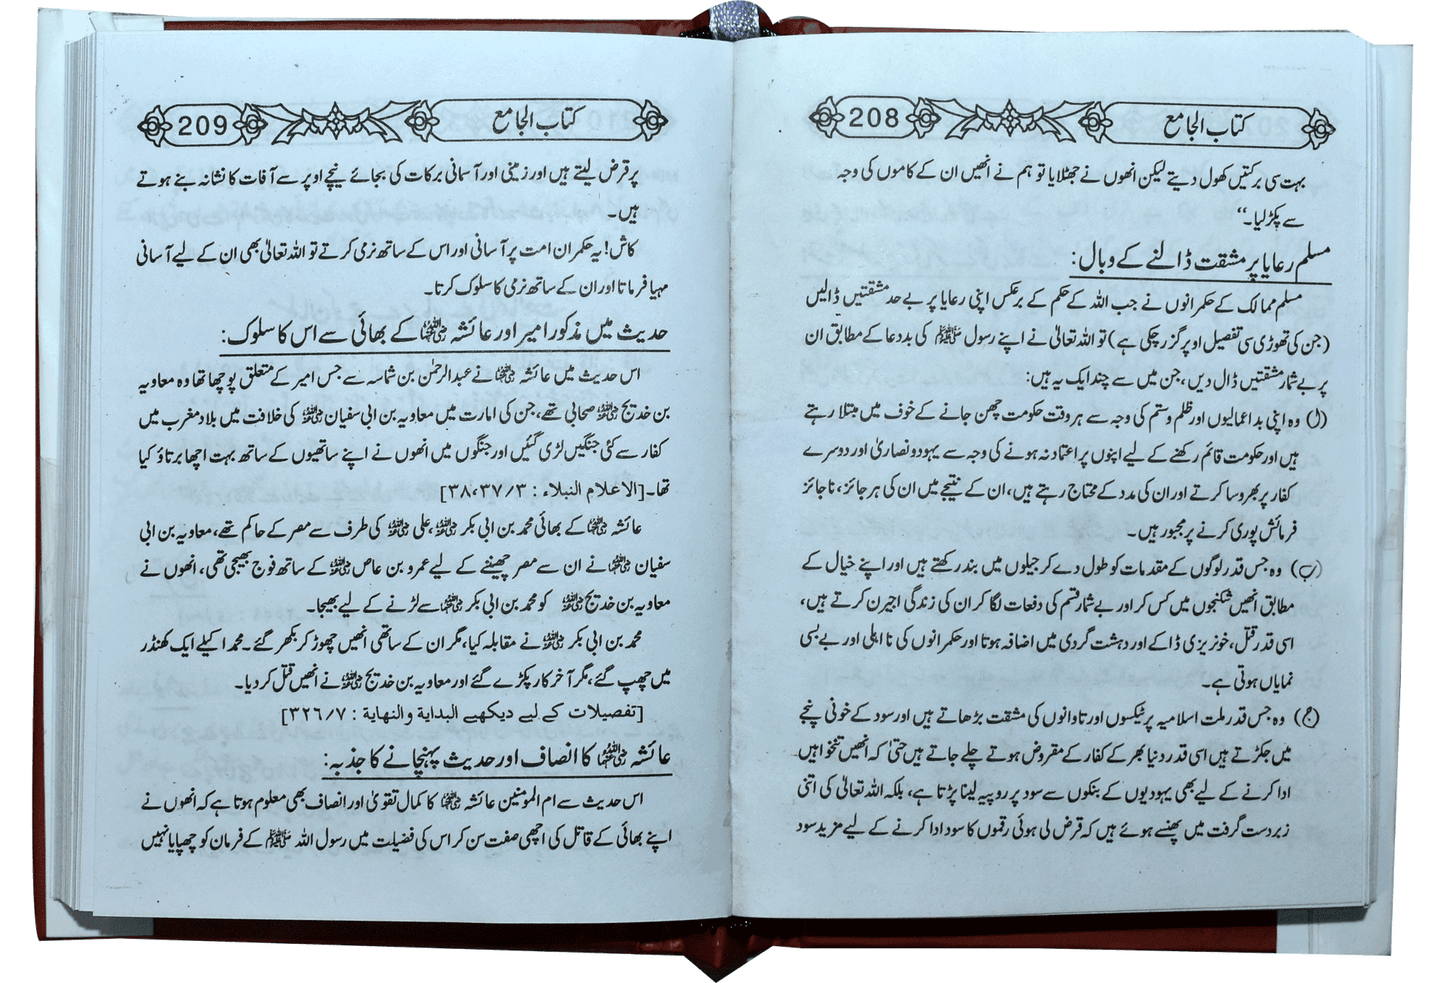 208 کتاب الجامع
بہت سی برکتیں کھول دیتے لیکن انھوں نے جھٹلایا تو ہم نے انھیں ان کے کاموں کی وجہ
سے پکڑ لیا۔‘‘
مسلم رعایا پر مشقت ڈالنے کے وبال:
مسلم ممالک کے حکمرانوں نے جب اللہ کے حکم کے برعکس اپنی رعایا پر بے حد مشقتیں ڈالیں
(جن کی تھوڑی سی تفصیل اوپر گزر چکی ہے) تو اللہ تعالیٰ نے اپنے رسول ﷺ کی بددعا کے مطابق ان
پر بے شمار مشقتیں ڈال دیں، جن میں سے چند ایک یہ ہیں:
(ا) وہ اپنی بداعمالیوں اور ظلم و ستم کی وجہ سے ہر وقت حکومت چھن جانے کے خوف میں مبتلا رہتے
ہیں اور حکومت قائم رکھنے کے لیے اپنوں پر اعتماد نہ ہونے کی وجہ سے یہود و نصاریٰ اور دوسرے
کفار پر بھروسا کرتے اور ان کی مدد کے محتاج رہتے ہیں، ان کے نتیجے میں ان کی ہر جائز، ناجائز
فرمائش پوری کرنے پر مجبور ہیں۔
(ب) وہ جس قدر لوگوں کے مقدمات کو طول دے کر جیلوں میں بند رکھتے ہیں اور اپنے خیال کے
مطابق انھیں شکنجوں میں کس کر اور بے شمار قسم کی دفعات لگا کر ان کی زندگی اجیرن کرتے ہیں،
اسی قدر قتل، خونریزی ڈاکے اور دہشت گردی میں اضافہ ہوتا اور حکمرانوں کی نااہلی اور بے بسی
نمایاں ہوتی ہے۔
(ج) وہ جس قدر ملت اسلامیہ پر ٹیکسوں اور تاوانوں کی مشقت بڑھاتے ہیں اور سود کے خونی پنجے
میں جکڑتے ہیں اسی قدر دنیا بھر کے کفار کے مقروض ہوتے چلے جاتے ہیں حتیٰ کہ انھیں تنخواہیں
ادا کرنے کے لیے بھی یہودیوں کے بنکوں سے سود پر روپیہ لینا پڑتا ہے، بلکہ اللہ تعالیٰ کی اتنی
زبردست گرفت میں پھنسے ہوئے ہیں کہ قرض لی ہوئی رقموں کا سود ادا کرنے کے لیے مزید سود
209 کتاب الجامع
پر قرض لیتے ہیں اور زمینی اور آسمانی برکات کی بجائے نیچے اوپر سے آفات کا نشانہ بنے ہوتے
ہیں۔
کاش! یہ حکمران امت پر آسانی اور اس کے ساتھ نرمی کرتے تو اللہ تعالیٰ بھی ان کے لیے آسانی
مہیا فرماتا اور ان کے ساتھ نرمی کا سلوک کرتا۔
حدیث میں مذکور امیر اور عائشہ رضی اللہ عنہا کے بھائی سے اس کا سلوک:
اس حدیث میں عائشہ رضی اللہ عنہا نے عبدالرحمٰن بن شماسہ سے جس امیر کے متعلق پوچھا تھا وہ معاویہ
بن خدیج رضی اللہ عنہ صحابی تھے، جن کی امارت میں معاویہ بن ابی سفیان رضی اللہ عنہ کی خلافت میں بلاد مغرب میں
کفار سے کئی جنگیں لڑی گئیں اور جنگوں میں انھوں نے اپنے ساتھیوں کے ساتھ بہت اچھا برتاؤ کیا
تھا۔ [الاعلام النبلاء : ۳/۳۷،۳۸]
عائشہ رضی اللہ عنہا کے بھائی محمد بن ابی بکر رضی اللہ عنہ، علی رضی اللہ عنہ کی طرف سے مصر کے حاکم تھے، معاویہ بن ابی
سفیان رضی اللہ عنہ نے ان سے مصر چھیننے کے لیے عمرو بن عاص رضی اللہ عنہ کے ساتھ فوج بھیجی تھی، انھوں نے
معاویہ بن خدیج رضی اللہ عنہ کو محمد بن ابی بکر رضی اللہ عنہ سے لڑنے کے لیے بھیجا۔
محمد بن ابی بکر رضی اللہ عنہ نے مقابلہ کیا، مگر ان کے ساتھی انھیں چھوڑ کر بکھر گئے۔ محمد اکیلے ایک کھنڈر
میں چھپ گئے، مگر آخر کار پکڑے گئے اور معاویہ بن خدیج رضی اللہ عنہ نے انھیں قتل کر دیا۔
[تفصیلات کے لیے دیکھیے البدایة والنهایة : ۷/۳۲۶]
عائشہ رضی اللہ عنہا کا انصاف اور حدیث پہنچانے کا جذبہ:
اس حدیث سے ام المومنین عائشہ رضی اللہ عنہا کا کمال تقویٰ اور انصاف بھی معلوم ہوتا ہے کہ انھوں نے
اپنے بھائی کے قاتل کی اچھی صفت سن کر اس کی فضیلت میں رسول اللہ ﷺ کے فرمان کو چھپایا نہیں